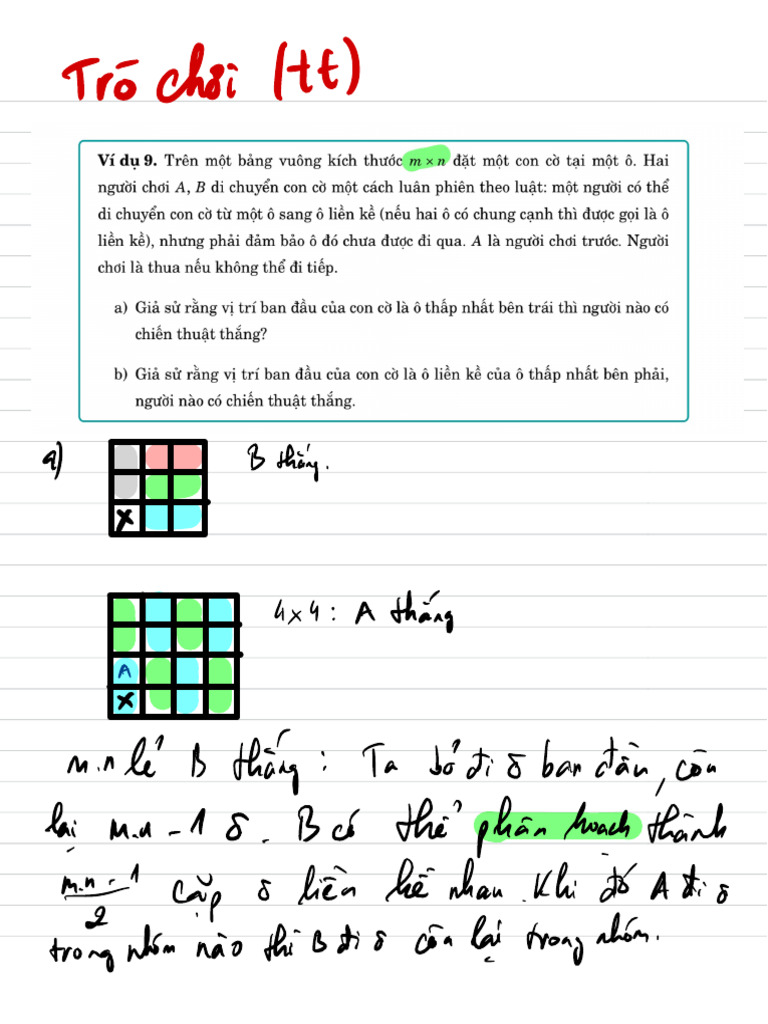 Trò chơi (tt)
Ví dụ 9. Trên một bảng vuông kích thước m × n đặt một con cờ tại một ô. Hai
người chơi A, B di chuyển con cờ một cách luân phiên theo luật: một người có thể
di chuyển con cờ từ một ô sang ô liền kề (nếu hai ô có chung cạnh thì được gọi là ô
liền kề), nhưng phải đảm bảo ô đó chưa được đi qua. A là người chơi trước. Người
chơi là thua nếu không thể đi tiếp.
a) Giả sử rằng vị trí ban đầu của con cờ là ô thấp nhất bên trái thì người nào có
chiến thuật thắng?
b) Giả sử rằng vị trí ban đầu của con cờ là ô liền kề của ô thấp nhất bên phải,
người nào có chiến thuật thắng.
a) B thắng.
X
4x4: A thắng
A
X
m.n lẻ B thắng: Ta bỏ đi ô ban đầu, còn
lại m.n - 1 ô. B có thể phân hoạch thành
m.n - 1
2
cặp ô liền kề nhau. Khi đó A đi ô
trong nhóm nào thì B đi ô còn lại trong nhóm.